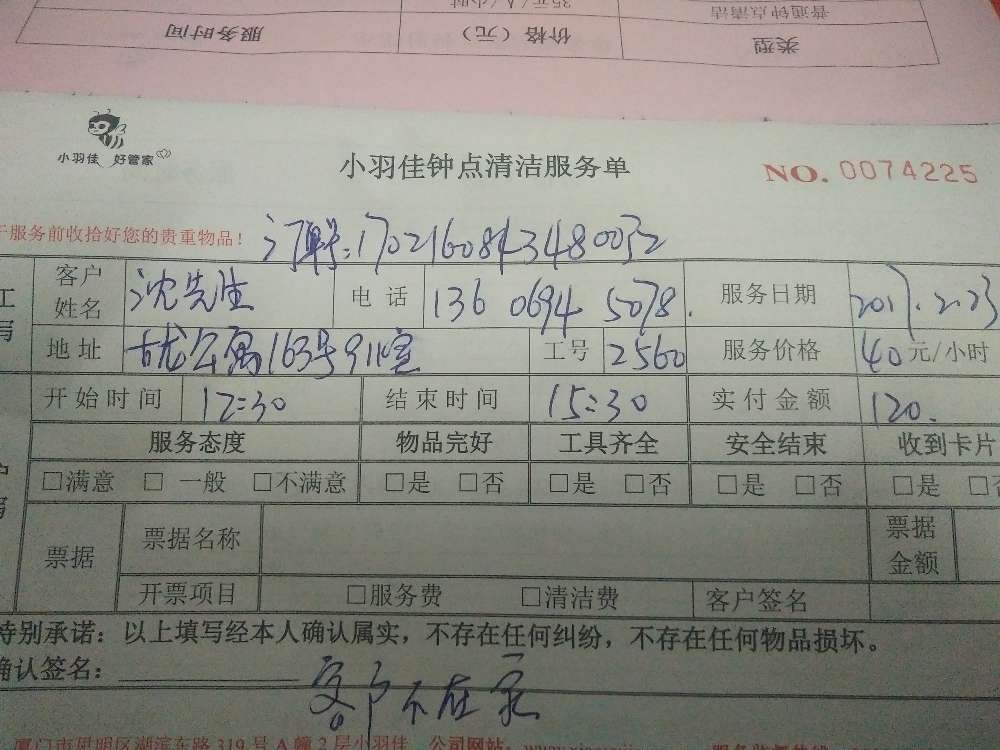 普通钟点清洁 35元/人/小时
类型 价格（元） 服务时间
小羽佳 好管家
小羽佳钟点清洁服务单
NO. 0074225
于服务前收拾好您的贵重物品！
客户姓名 沈先生 电话 136 0694 5078. 服务日期 2017.2.23
地址 163号911室 工号 2560 服务价格 40元/小时
开始时间 12:30 结束时间 15:30 实付金额 120.
服务态度 物品完好 工具齐全 安全结束 收到卡片
□满意 □一般 □不满意 □是 □否 □是 □否 □是 □否 □是
票据 票据名称 票据金额
开票项目 □服务费 □清洁费 客户签名
特别承诺：以上填写经本人确认属实，不存在任何纠纷，不存在任何物品损坏。
确认签名：
客户不在家
厦门市思明区湖滨东路319号A幢2层小羽佳 公司网站：